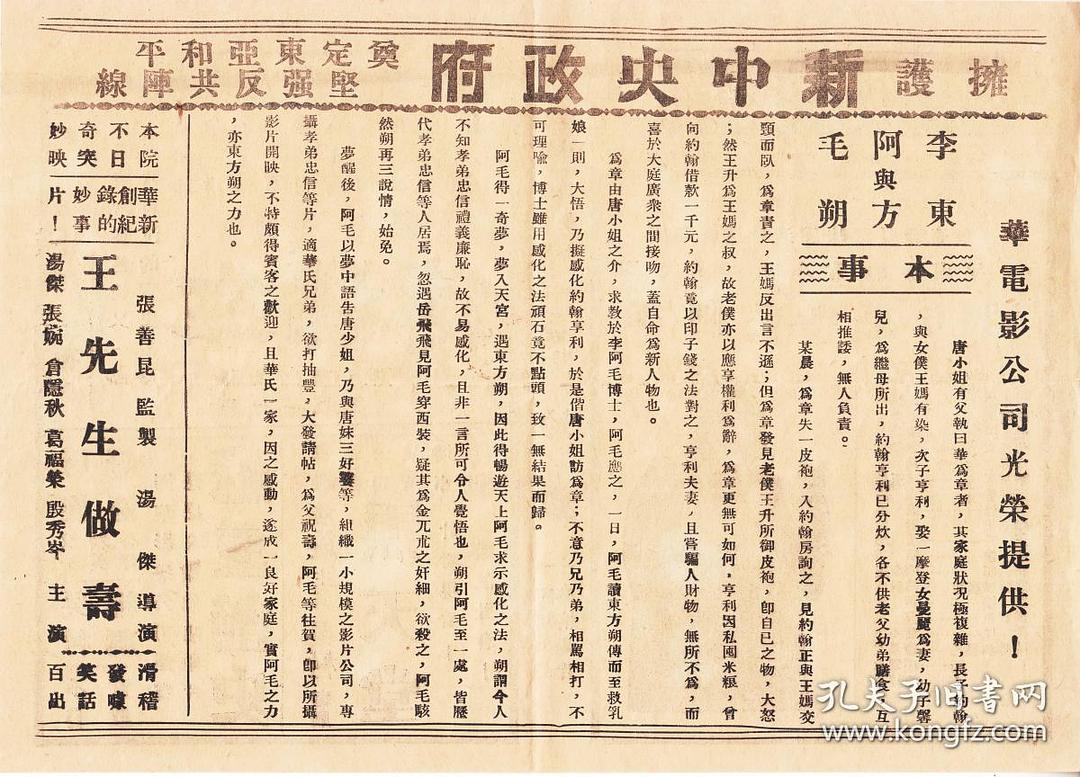 擁護新中央政府
奠定東亞和平
堅强反共陣線
華電影公司光榮提供！
李阿毛與東方朔
本事
唐小姐有父執曰華爲章者，其家庭狀況極複雜，長子約翰
，與女僕王媽有染，次子亨利，娶一摩登女曼麗爲妻，幼子馨
兒，爲繼母所出，約翰亨利已分炊，各不供老父幼弟膳食，互
相推諉，無人負責。
某晨，爲章失一皮袍，入約翰房詢之，見約翰正與王媽交
頸而臥，爲章責之，王媽反出言不遜；但爲章發見老僕王升所御皮袍，卽自已之物，大怒
；然王升爲王媽之叔，故老僕亦以應享權利爲辭，爲章更無可如何，亨利因私囤米粮，曾
向約翰借款一千元，約翰竟以印子錢之法對之，亨利夫妻，且嘗騙人財物，無所不爲，而
喜於大庭廣衆之間接吻，蓋自命爲新人物也。
爲章由唐小姐之介，求敎於李阿毛博士，阿毛應之，一日，阿毛讀東方朔傳而至救乳
娘一則，大悟，乃擬感化約翰亨利，於是偕唐小姐訪爲章；不意乃兄乃弟，相罵相打，不
可理喻，博士雖用感化之法頑石竟不點頭，致一無結果而歸。
阿毛得一奇夢，夢入天宮，遇東方朔，因此得暢遊天上阿毛求示感化之法，朔謂今人
不知孝弟忠信禮義廉恥，故不易感化，且非一言所可令人覺悟也，朔引阿毛至一處，皆歷
代孝弟忠信等人居焉，忽遇岳飛飛見阿毛穿西裝，疑其爲金兀朮之奸細，欲殺之，阿毛駭
然朔再三說情，始免。
夢醒後，阿毛以夢中語告唐少姐，乃與唐妹三好嬰等，組織一小規模之影片公司，專
攝孝弟忠信等片，適華氏兄弟，欲打抽豐，大發請帖，爲父祝壽，阿毛等往賀，卽以所攝
影片開映，不特頗得賓客之歡迎，且華氏一家，因之感動，遂成一良好家庭，實阿毛之力
，亦東方朔之力也。
本院不日奇突妙映
華新創紀錄的妙事片！
張善琨監製　湯傑導演
王先生做壽
湯傑　張婉　倉隱秋　葛福榮　殷秀岑　主演
滑稽發噱
笑話百出
孔夫子旧书网
www.kongfz.com